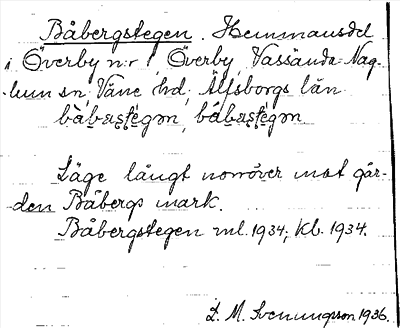 Båbergstegen. Hemmansdel
i Överby nr 1 Överby Vassända-Nag-
lum sn, Väne hd, Älfsborgs län
bàbæʂʈégən, båbæʂʈegən
Läge långt norröver mot går-
den Båbergs mark.
Båbergstegen ml. 1934; kb. 1934.
L. M. Svenungsson 1936.